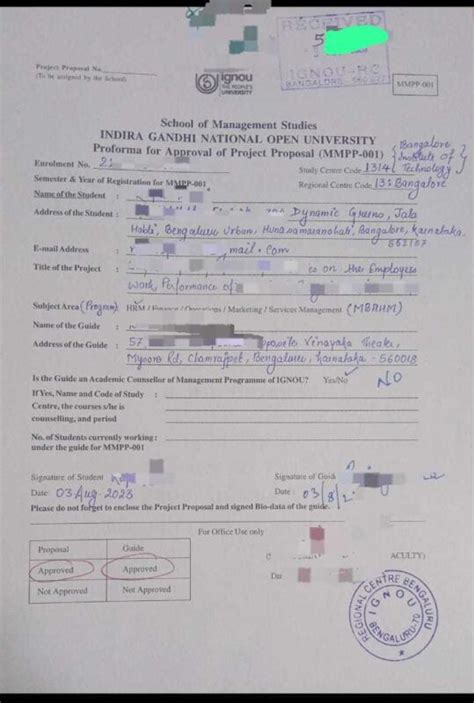 RECEIVED
IGNOU-RC
BANGALORE
Project Proposal No.
(To be assigned by the School)
ignou
THE PEOPLE'S
UNIVERSITY
MMPP-001
School of Management Studies
INDIRA GANDHI NATIONAL OPEN UNIVERSITY
Proforma for Approval of Project Proposal (MMPP-001)
Bangalore
Institute of
Technology
Enrolment No. 2
Study Centre Code 1314
Semester & Year of Registration for MMPP-001
Regional Centre Code 13: Bangalore
Name of the Student :
Address of the Student : Dynamic Jala
Hobli, Bengaluru Urban, Bangalore, Karnataka-
E-mail Address : mail.com
Title of the Project : on the Employees
Work Performance of
Subject Area (Program): HRM / Finance / Operations / Marketing / Services Management (MBRHM)
Name of the Guide :
Address of the Guide : 57 Vinayaka
Mysore Rd, Chamrajpet, Bengaluru, Karnataka - 560018
Is the Guide an Academic Counsellor of Management Programme of IGNOU? Yes/No NO
If Yes, Name and Code of Study :
Centre, the courses s/he is
counselling, and period
No. of Students currently working :
under the guide for MMPP-001
Signature of Student
Signature of Guide
Date: 03 Aug-2023
Date : 03/8/2
Please do not forget to enclose the Project Proposal and signed Bio-data of the guide.
For Office Use only
Proposal Guide
Approved Approved
Not Approved Not Approved
ACULTY)
Dat
REGIONAL CENTRE BENGALURU
IGNOU
BENGALURU-70